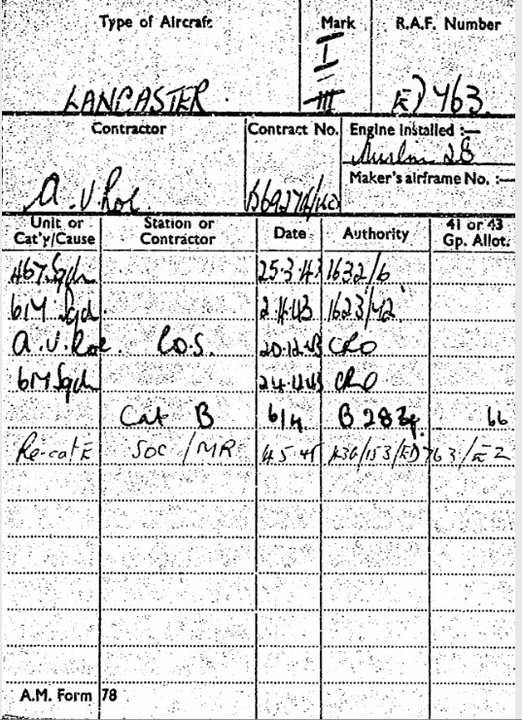 Type of Aircraft Mark R.A.F. Number
I
LANCASTER. III ED 763.
Contractor Contract No. Engine installed :—
Merlin 28
Maker's airframe No. :—
A. V. Roe.
Unit or Cat'y/Cause Station or Contractor Date Authority 41 or 43 Gp. Allot.
467 Sqdn 25·3·43 1632/6
617 Sqd. 1623/42
A.V. Roe. R.O.S. 20·12·43 CRO
617 Sqdn 24·12·43 CRO
Cat B 6/4 B 28 66
Re-cat E SOC / MR 4·5·45 /ED763/E2
A.M. Form 78